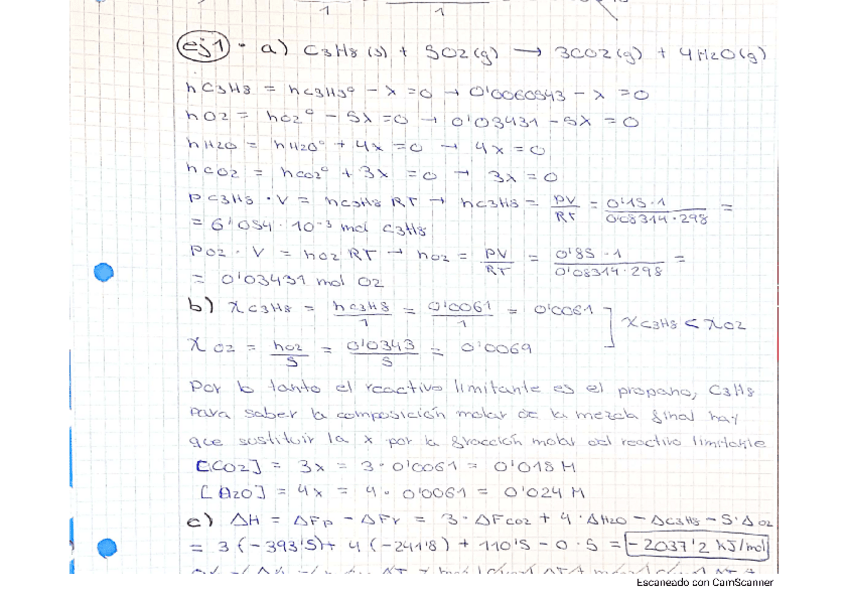 1 1
ej1 · a) C3H8(s) + 5O2(g) → 3CO2(g) + 4H2O(g)
nC3H8 = nC3H3° - x = 0 → 0'0060543 - x = 0
nO2 = nO2° - 5x = 0 → 0'03431 - 5x = 0
nH2O = nH2O° + 4x = 0 → 4x = 0
nCO2 = nCO2° + 3x = 0 → 3x = 0
PC3H8 · V = nC3H8 RT → nC3H8 = PV/RT = 0'15·1/0'08314·298 =
= 6'054·10⁻³ mol C3H8
PO2 · V = nO2 RT → nO2 = PV/RT = 0'85·1/0'08314·298 =
= 0'03431 mol O2
b) XC3H8 = nC3H8/1 = 0'0061/1 = 0'0061 ] XC3H8 < XO2
XO2 = nO2/5 = 0'0343/5 = 0'0069
Por lo tanto el reactivo limitante es el propano, C3H8
Para saber la composición molar de la mezcla final hay
que sustituir la x por la fracción molar del reactivo limitante
[CO2] = 3x = 3·0'0061 = 0'018 M
[H2O] = 4x = 4·0'0061 = 0'024 M
c) ΔH = ΔFp - ΔFr = 3·ΔFCO2 + 4·ΔH2O - ΔC3H8 - 5·ΔO2
= 3(-393'5) + 4(-241'8) + 110'5 - 0·5 = -2037'2 kJ/mol
Escaneado con CamScanner